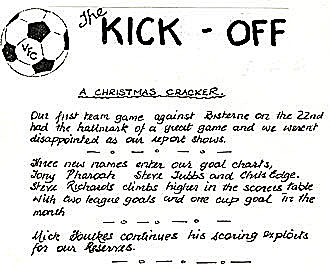 The
KICK - OFF
VFC
A CHRISTMAS CRACKER.
Our first team game against Bisterne on the 22nd
had the hallmark of a great game and we weren't
disappointed as our report shows.
Three new names enter our goal charts,
Tony Pharoah Steve Tubbs and Chris Edge.
Steve Richards climbs higher in the scorers table
with two league goals and one cup goal in the
month
Mick continues his scoring exploits
for our Reserves.